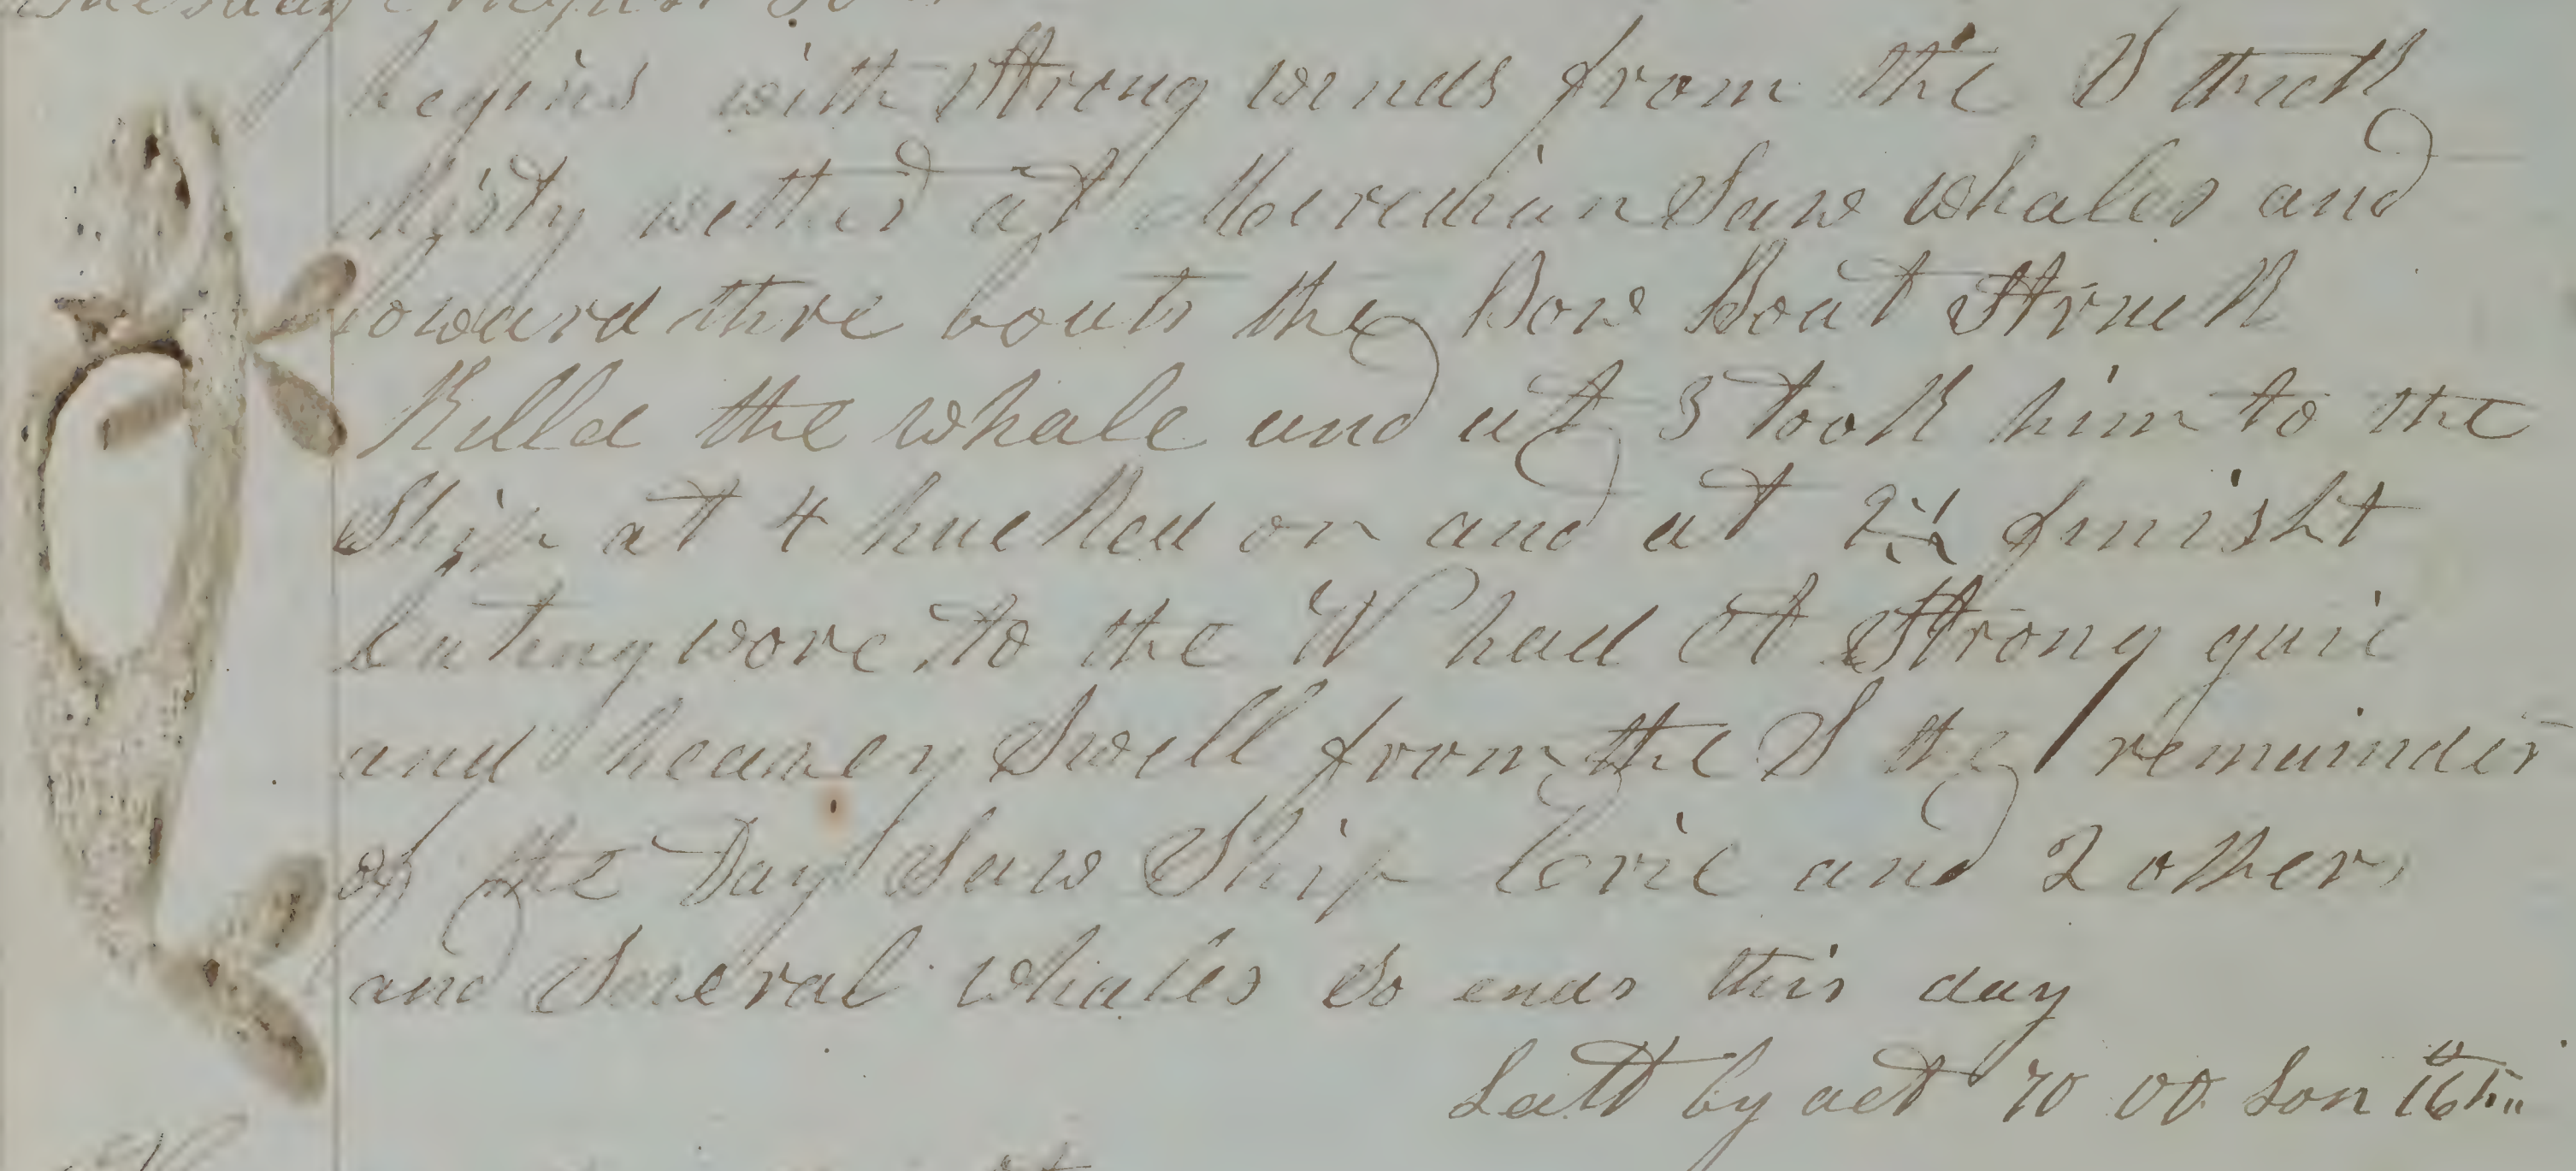 Tuesday August 30
begins with strong winds from the S thick
Misty wether at Meredian Saw whales and
loward thre boats the Bow Boat struck
Killd the whale and at 3 took him to the
Ship at 4 hucked on and at finisht
cuting wore to the W had A strong gail
and heavey Swell from the S the remainder
of the Day Saw Ship Eric and 2 others
and Several whales So ends this day
Latt by act 70 00 Lon